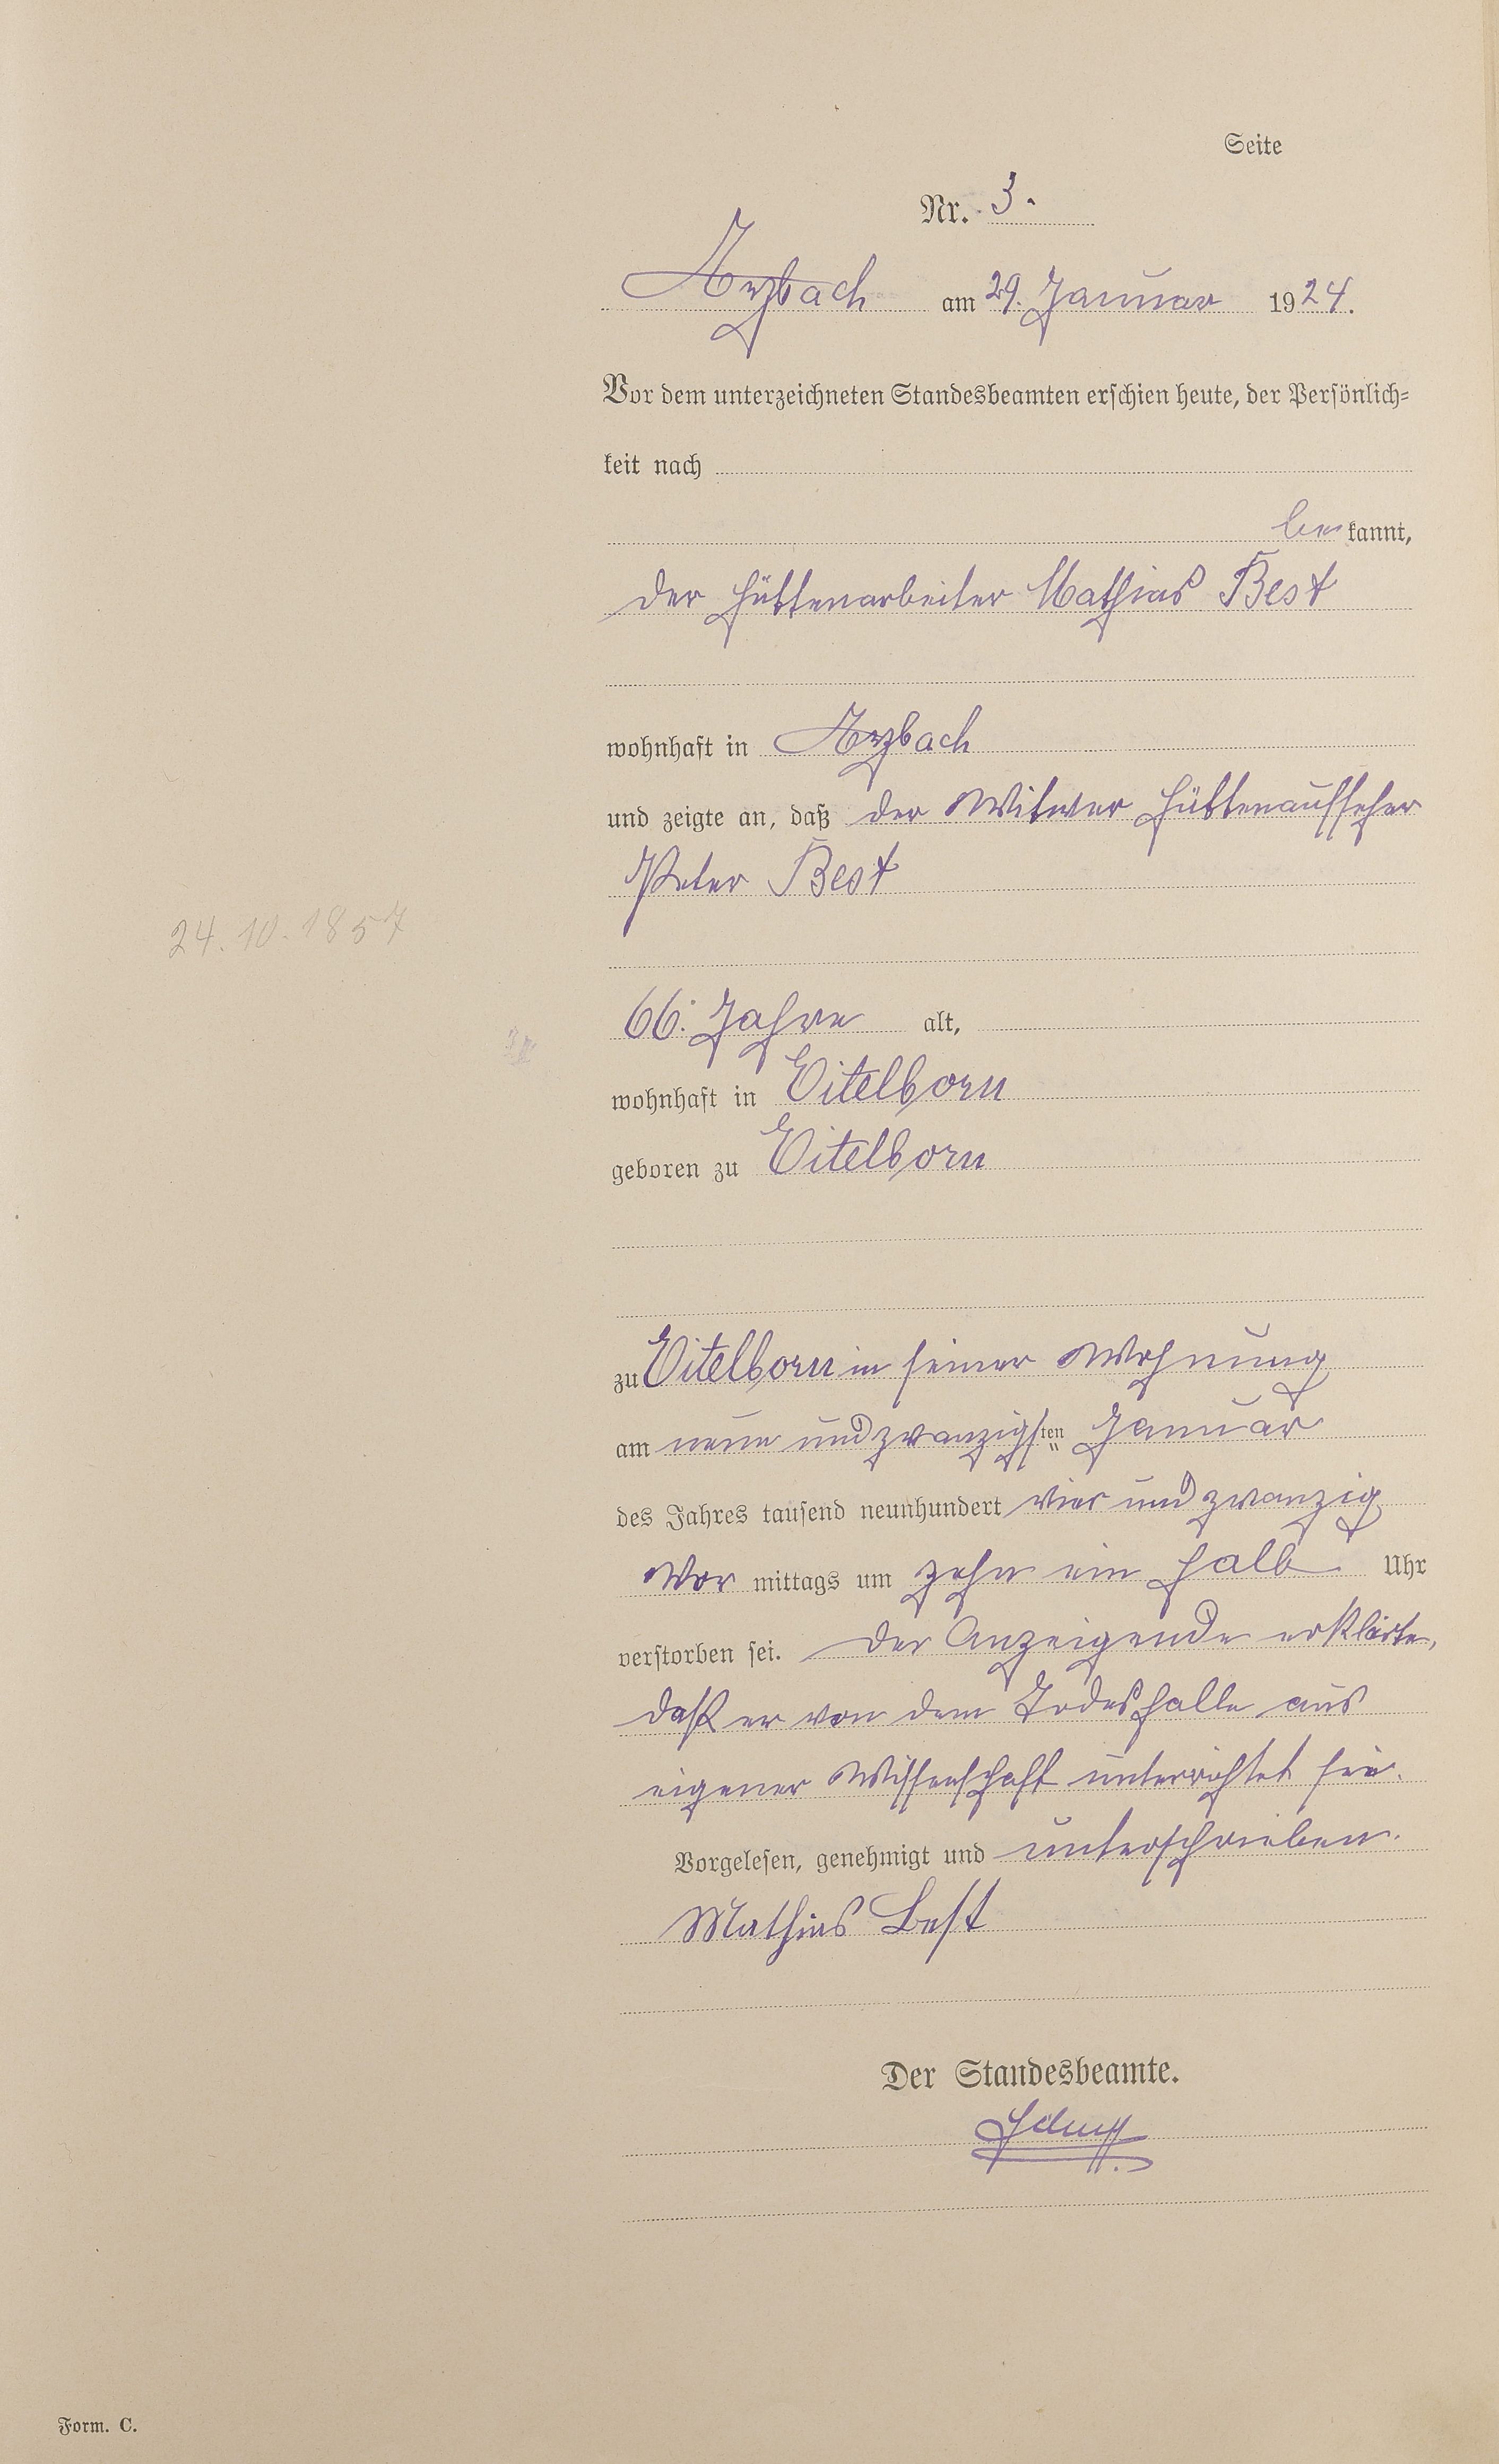 Seite
Nr. 3.
Arzbach am 29. Januar 1924.
Vor dem unterzeichneten Standesbeamten erschien heute, der Persönlich-
keit nach
be kannt,
der Hüttenarbeiter Mathias Best
wohnhaft in Arzbach
und zeigte an, daß der Witwer Hüttenaufseher
Peter Best
24.10.1857
66. Jahre alt,
wohnhaft in Eitelborn
geboren zu Eitelborn
zu Eitelborn in seiner Wohnung
am neun und zwanzigsten Januar
des Jahres tausend neunhundert vier und zwanzig
Vor mittags um zehn ein halb Uhr
verstorben sei. Der Anzeigende erklärte,
daß er von dem Todesfalle aus
eigener Wissenschaft unterrichtet sei.
Vorgelesen, genehmigt und unterschrieben.
Mathias Best
Der Standesbeamte.
Form. C.